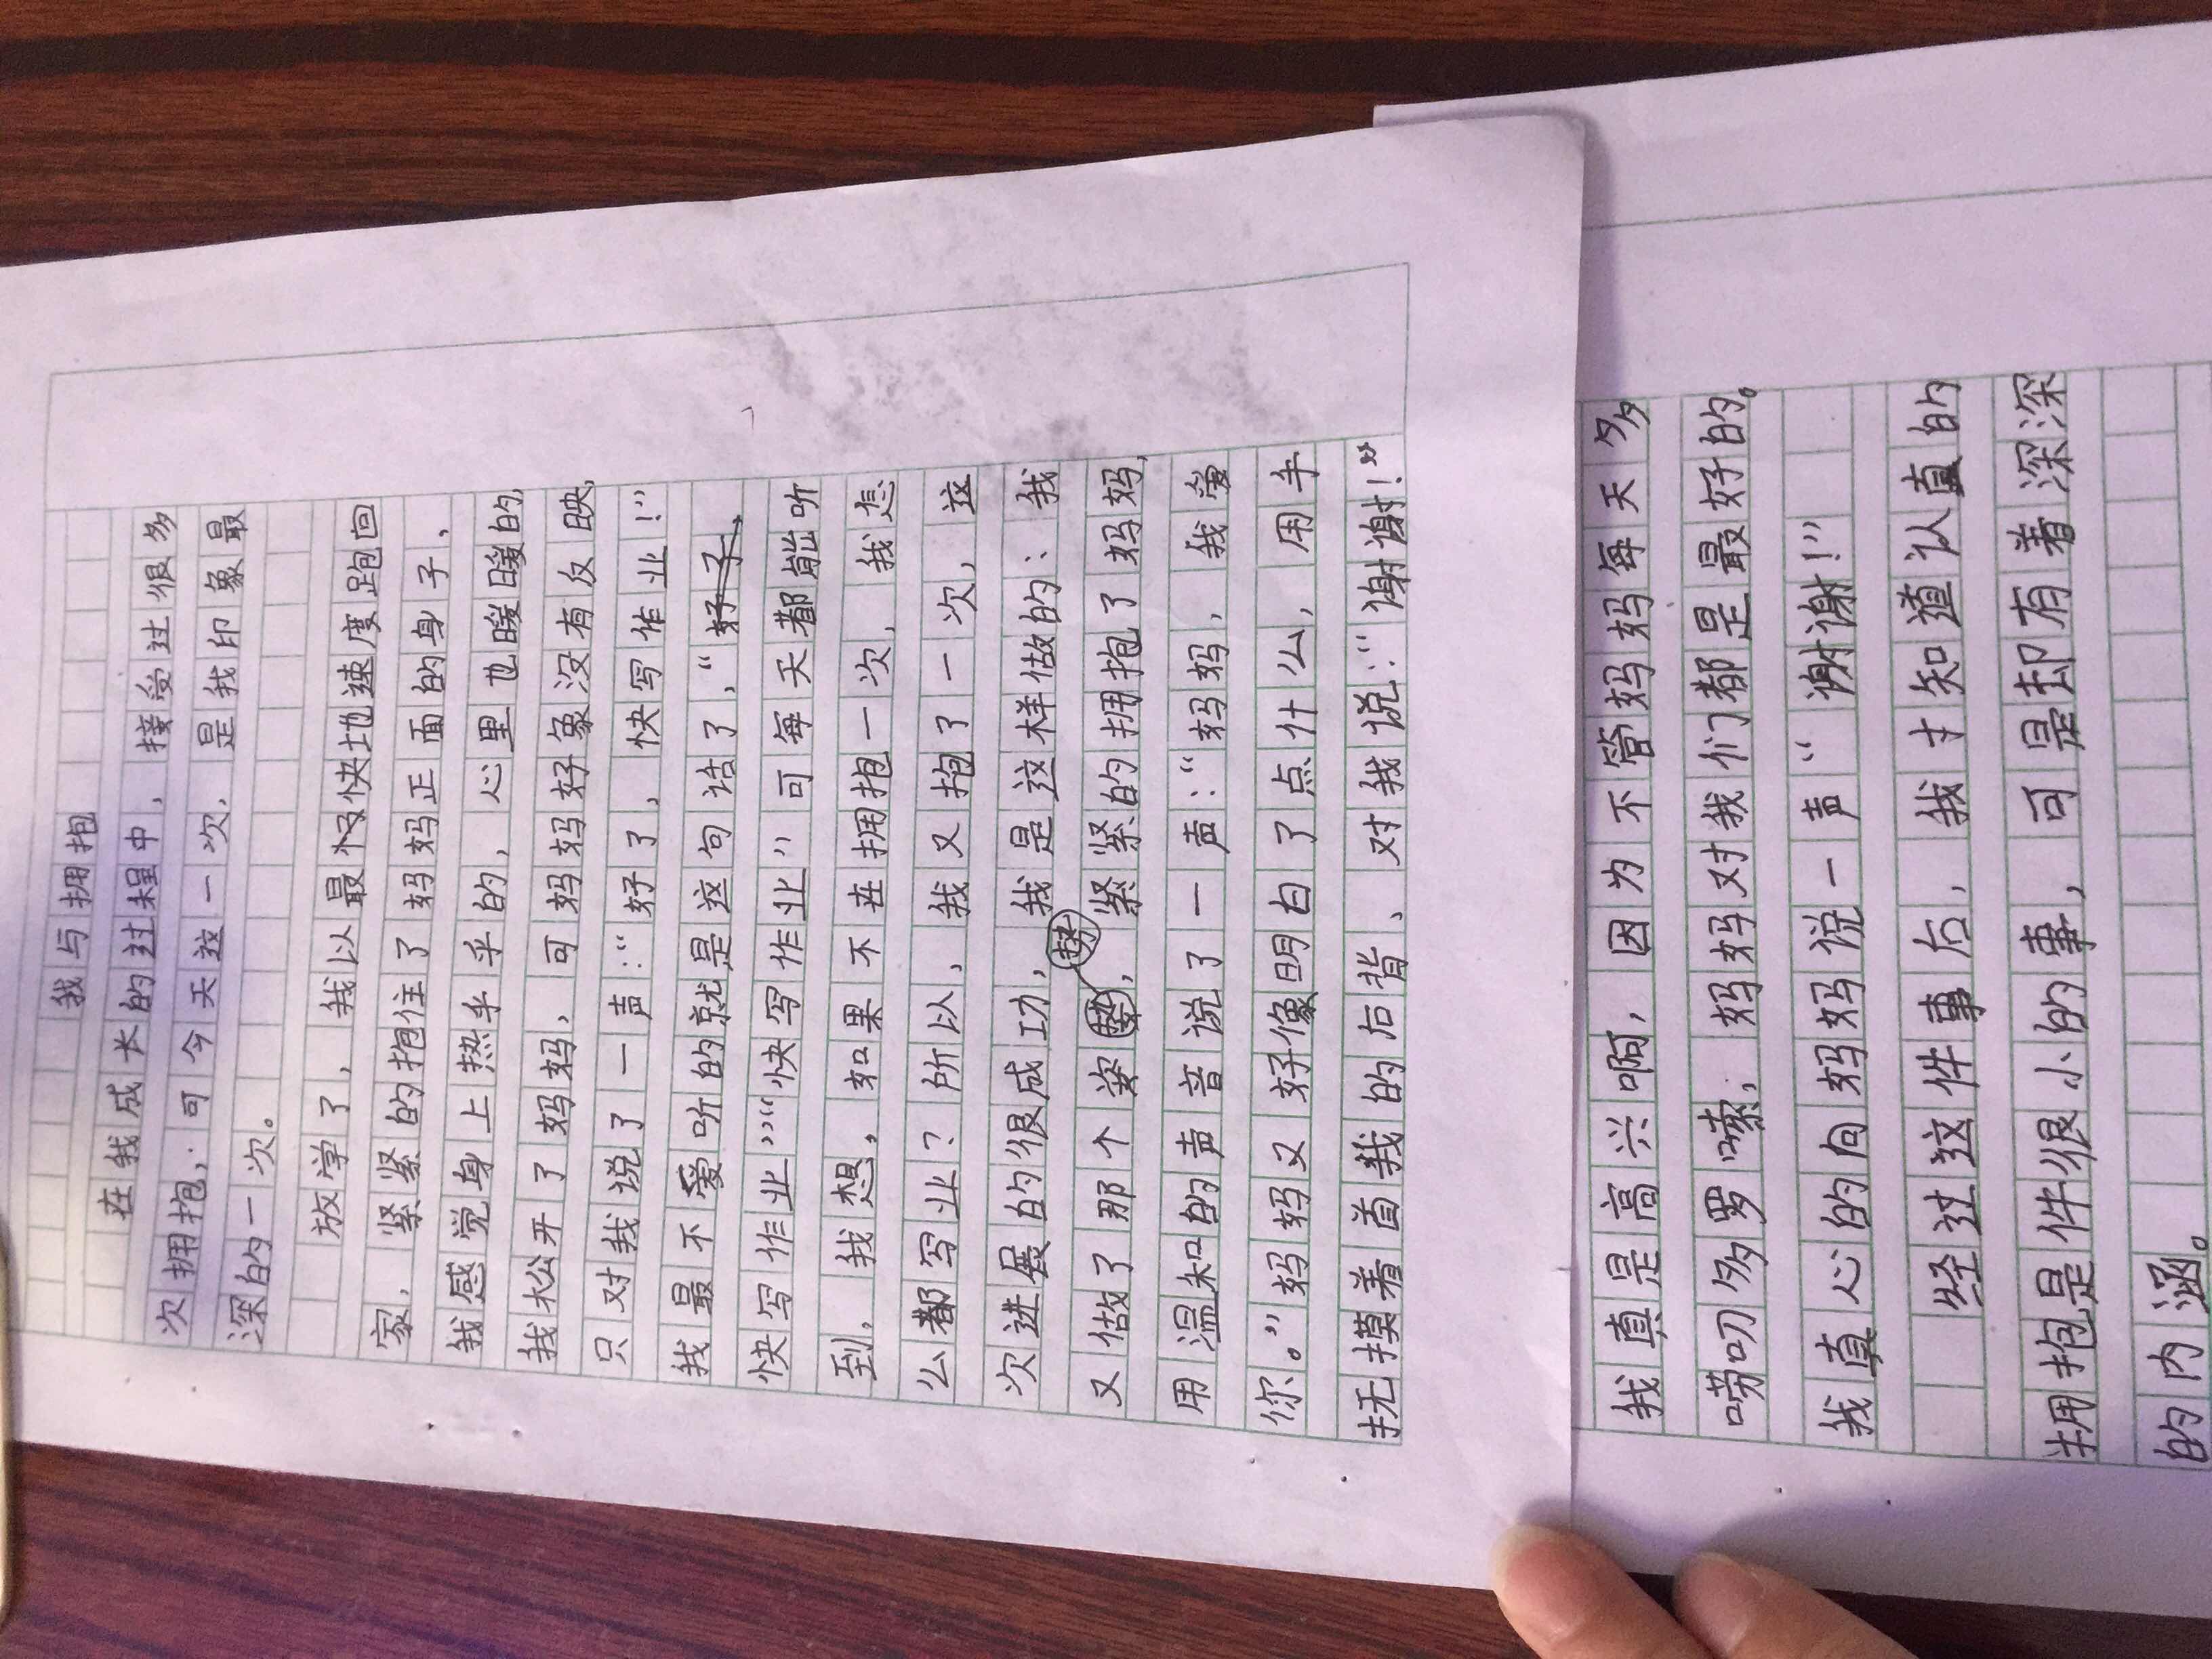 我与拥抱
在我成长的过程中，接受过很多
次拥抱，可今天这一次，是我印象最
深的一次。
放学了，我以最快地速度跑回
家，紧紧的抱住了妈妈正面的身子，
我感觉身上热乎乎的，心里也暖暖的，
我松开了妈妈，可妈妈好象没有反映，
只对我说了一声：“好了，快写作业！”
我最不爱听的就是这句话了，“
快写作业”“快写作业”可每天都能听
到，我想，如果不在拥抱一次，我怎
么都写业？所以，我又抱了一次，这
次进展的很成功，我是这样做的：我
又做了那个姿势，紧紧的拥抱了妈妈，
用温和的声音说了一声：“妈妈，我爱
你。”妈妈又好像明白了点什么，用手
抚摸着首我的后背、对我说：“谢谢！”
我真是高兴啊，因为不管妈妈每天多
唠叨多罗嗦，妈妈对我们都是最好的。
我真心的向妈妈说一声“谢谢！”
经过这件事后，我才知道认真的
拥抱是件很小的事，可是却有着深深
的内涵。